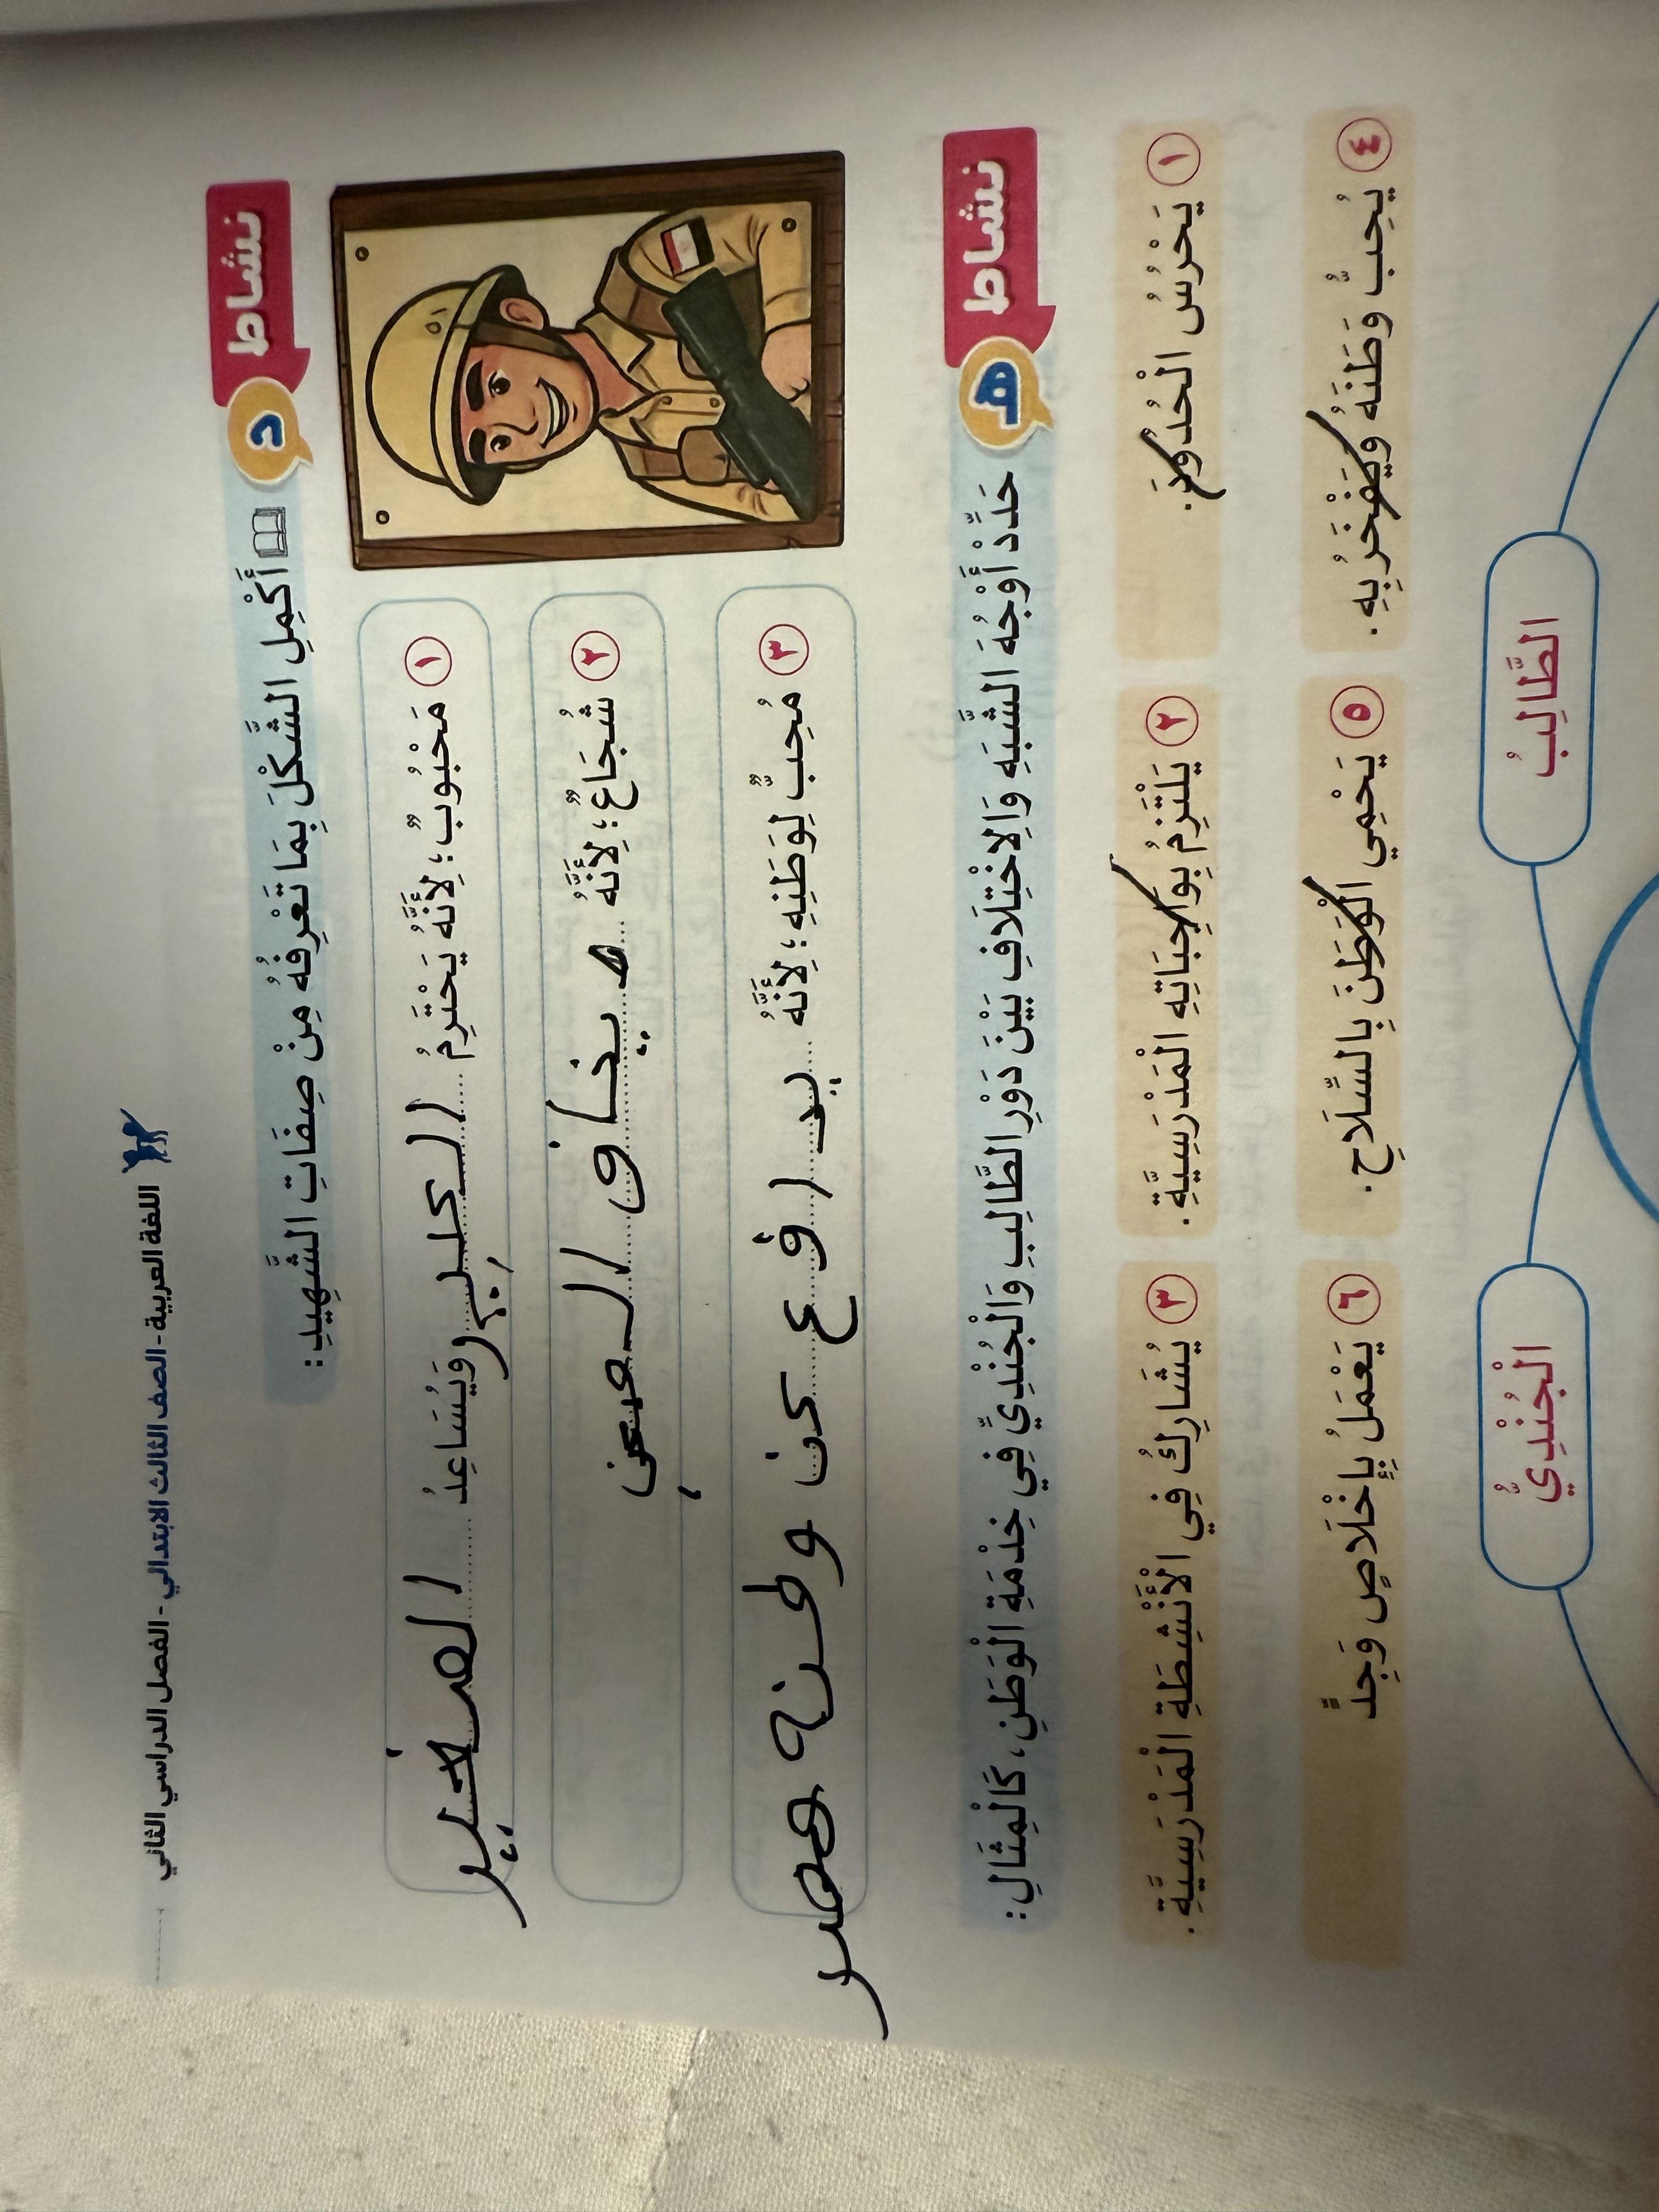 اللغة العربية - الصف الثالث الابتدائي - الفصل الدراسي الثاني
نشاط د أَكْمِلِ الشَّكْلَ بِمَا تَعْرِفُهُ مِنْ صِفَاتِ الشَّهِيدِ:
١ مَحْبُوبٌ؛ لِأَنَّهُ يَحْتَرِمُ الكبير وَيُسَاعِدُ الصغير
٢ شُجَاعٌ؛ لِأَنَّهُ يخاف
٣ مُحِبٌّ لِوَطَنِهِ؛ لِأَنَّهُ يدافع عن وطنه مصر
نشاط هـ حَدِّدْ أَوْجُهَ الشَّبَهِ وَالِاخْتِلَافِ بَيْنَ دَوْرِ الطَّالِبِ وَالْجُنْدِيِّ فِي خِدْمَةِ الْوَطَنِ، كَالْمِثَالِ:
١ يَحْرُسُ الْحُدُودَ. ٢ يَلْتَزِمُ بِوَاجِبَاتِهِ الْمَدْرَسِيَّةِ. ٣ يُشَارِكُ فِي الْأَنْشِطَةِ الْمَدْرَسِيَّةِ.
٤ يُحِبُّ وَطَنَهُ وَيَفْخَرُ بِهِ. ٥ يَحْمِي الْوَطَنَ بِالسِّلَاحِ. ٦ يَعْمَلُ بِإِخْلَاصٍ وَجِدٍّ
الطَّالِبُ الْجُنْدِيُّ